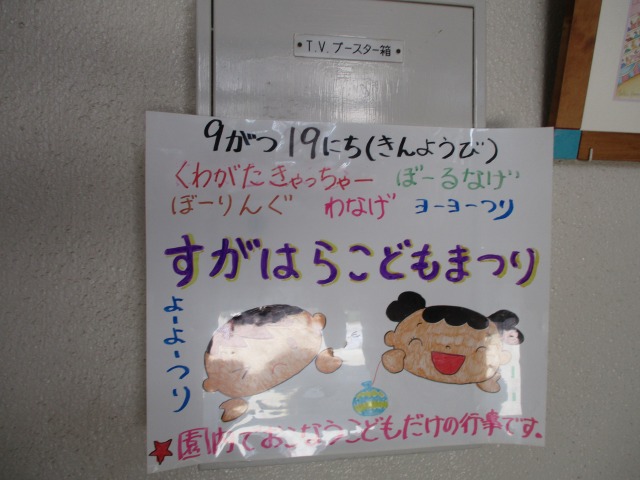 T.V.ブースター箱
9がつ19にち(きんようび)
くわがたきゃっちゃー ぼーるなげ
ぼーりんぐ わなげ ヨーヨーつり
すがはらこどもまつり
よーよーつり
園内でおこなうこどもだけの行事です。